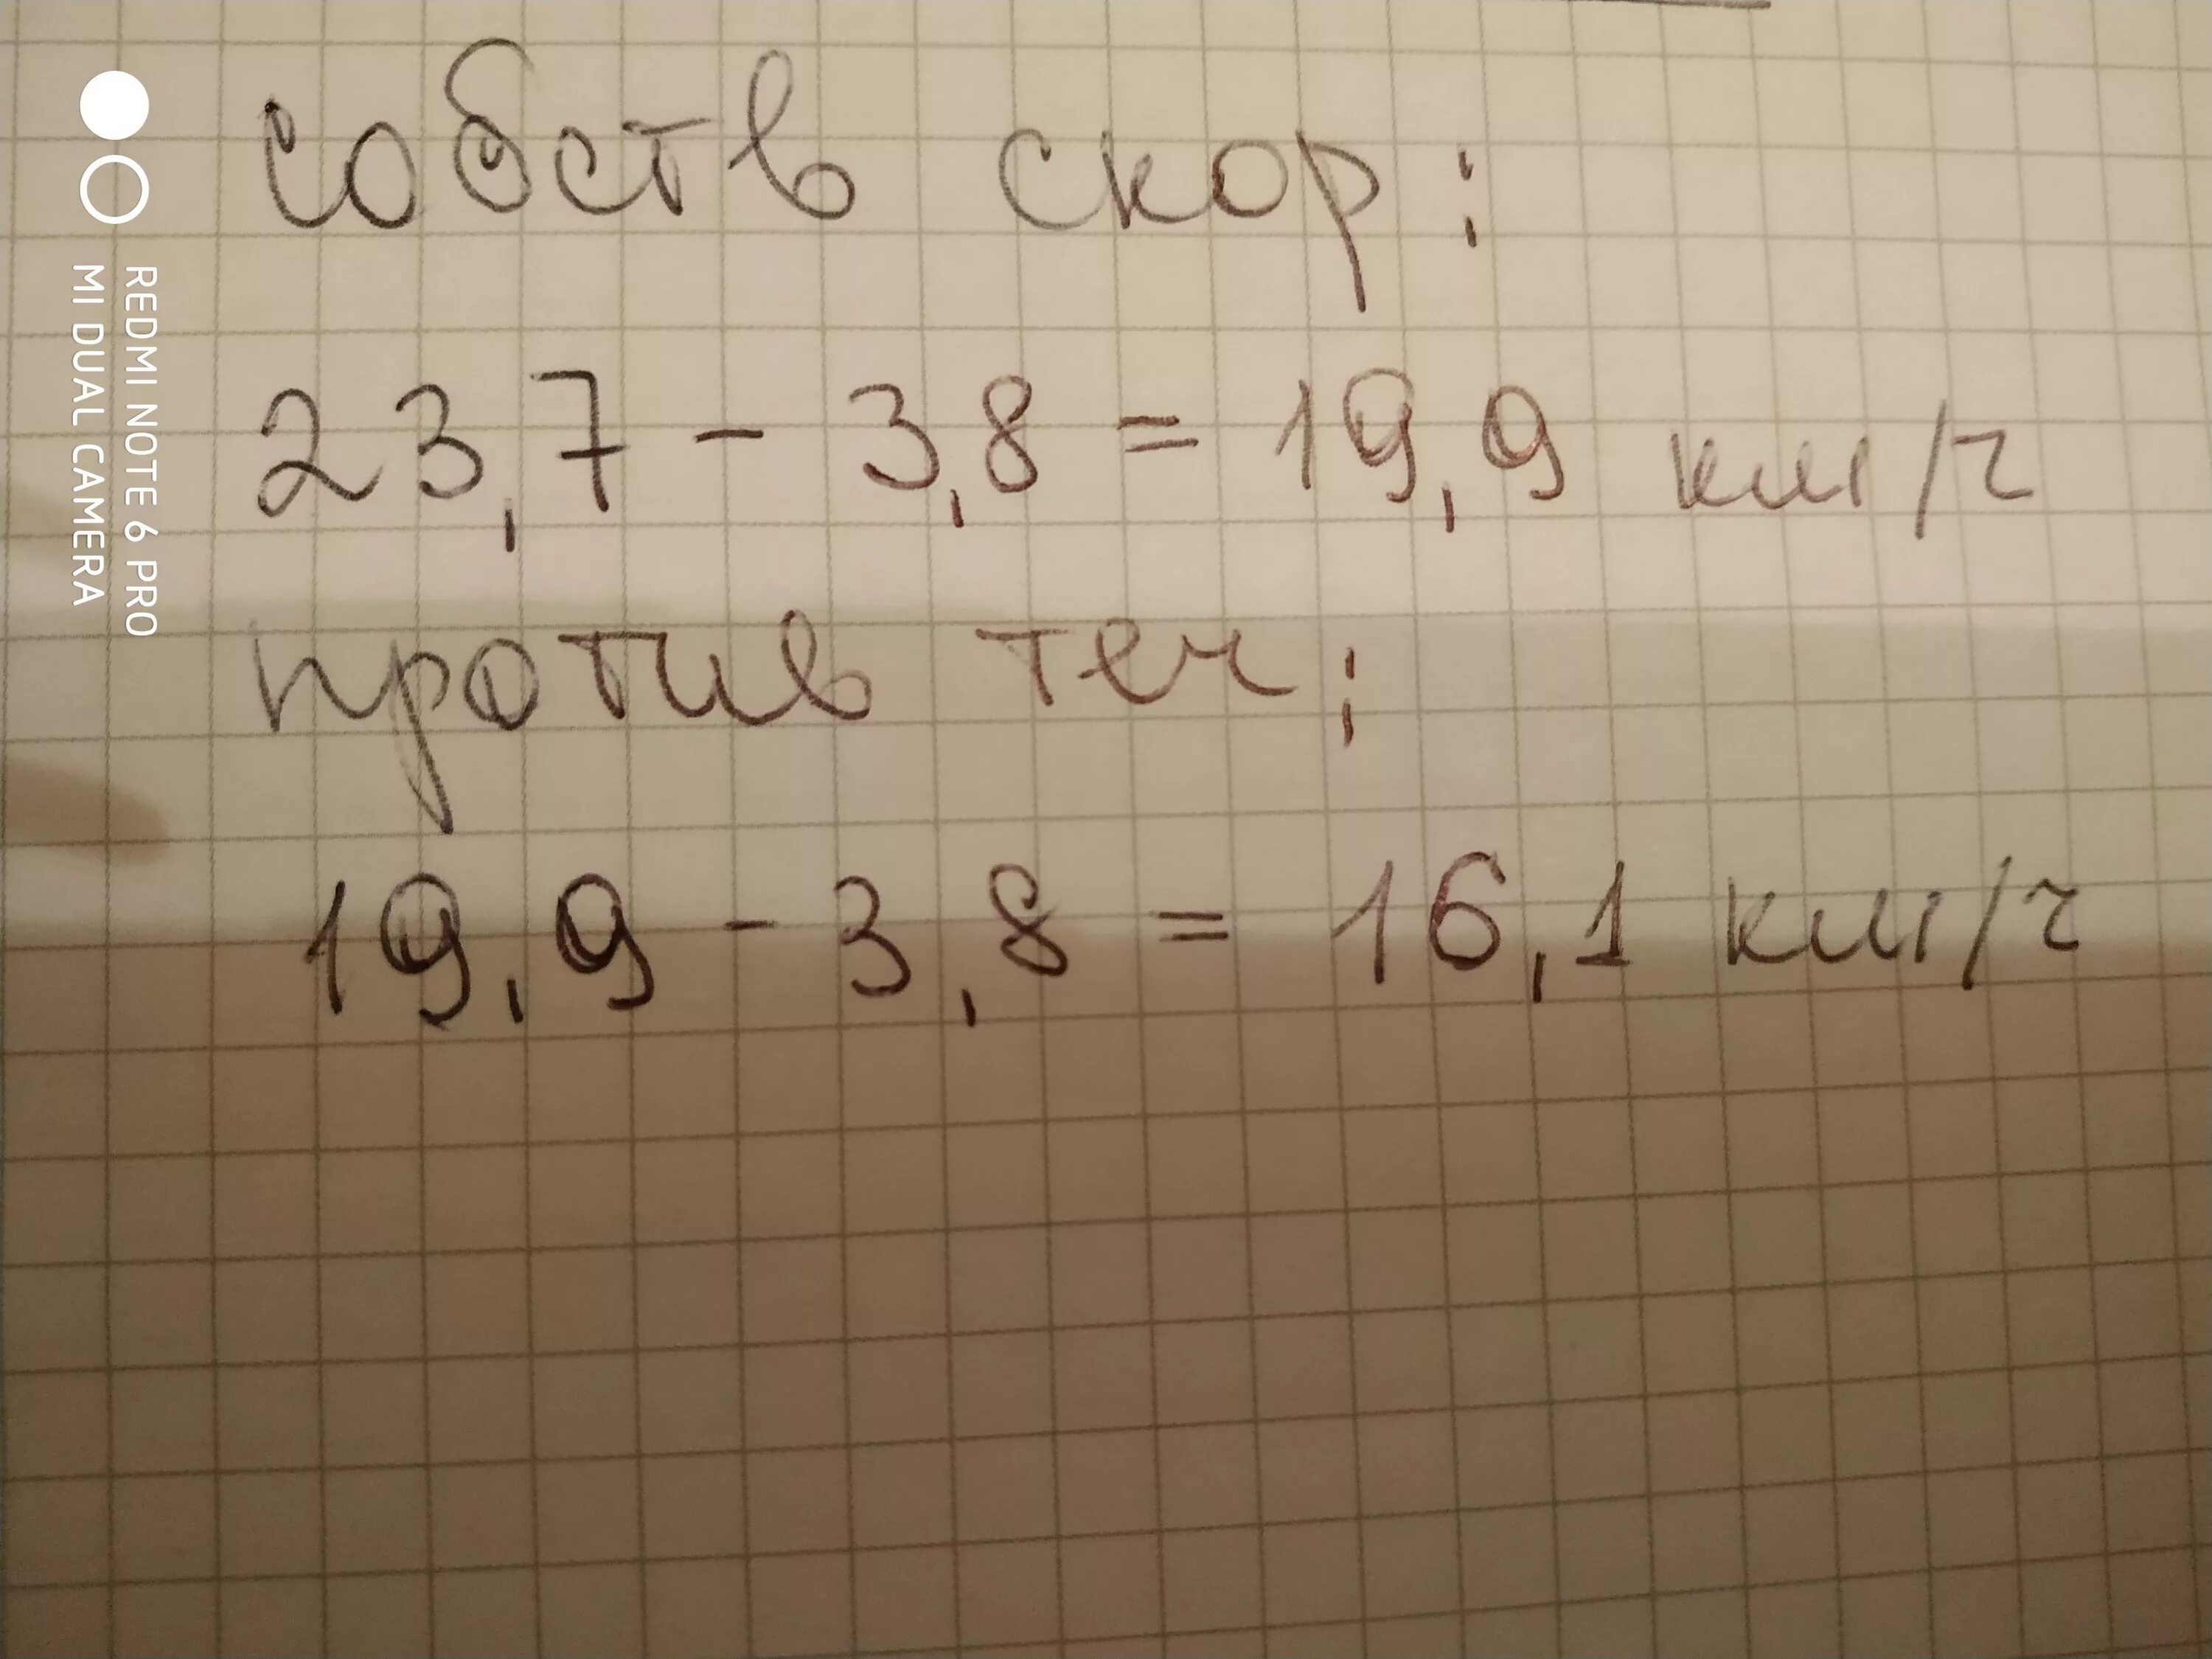 собств скор:
23,7 - 3,8 = 19,9 км/ч
против теч:
19,9 - 3,8 = 16,1 км/ч
REDMI NOTE 6 PRO
MI DUAL CAMERA